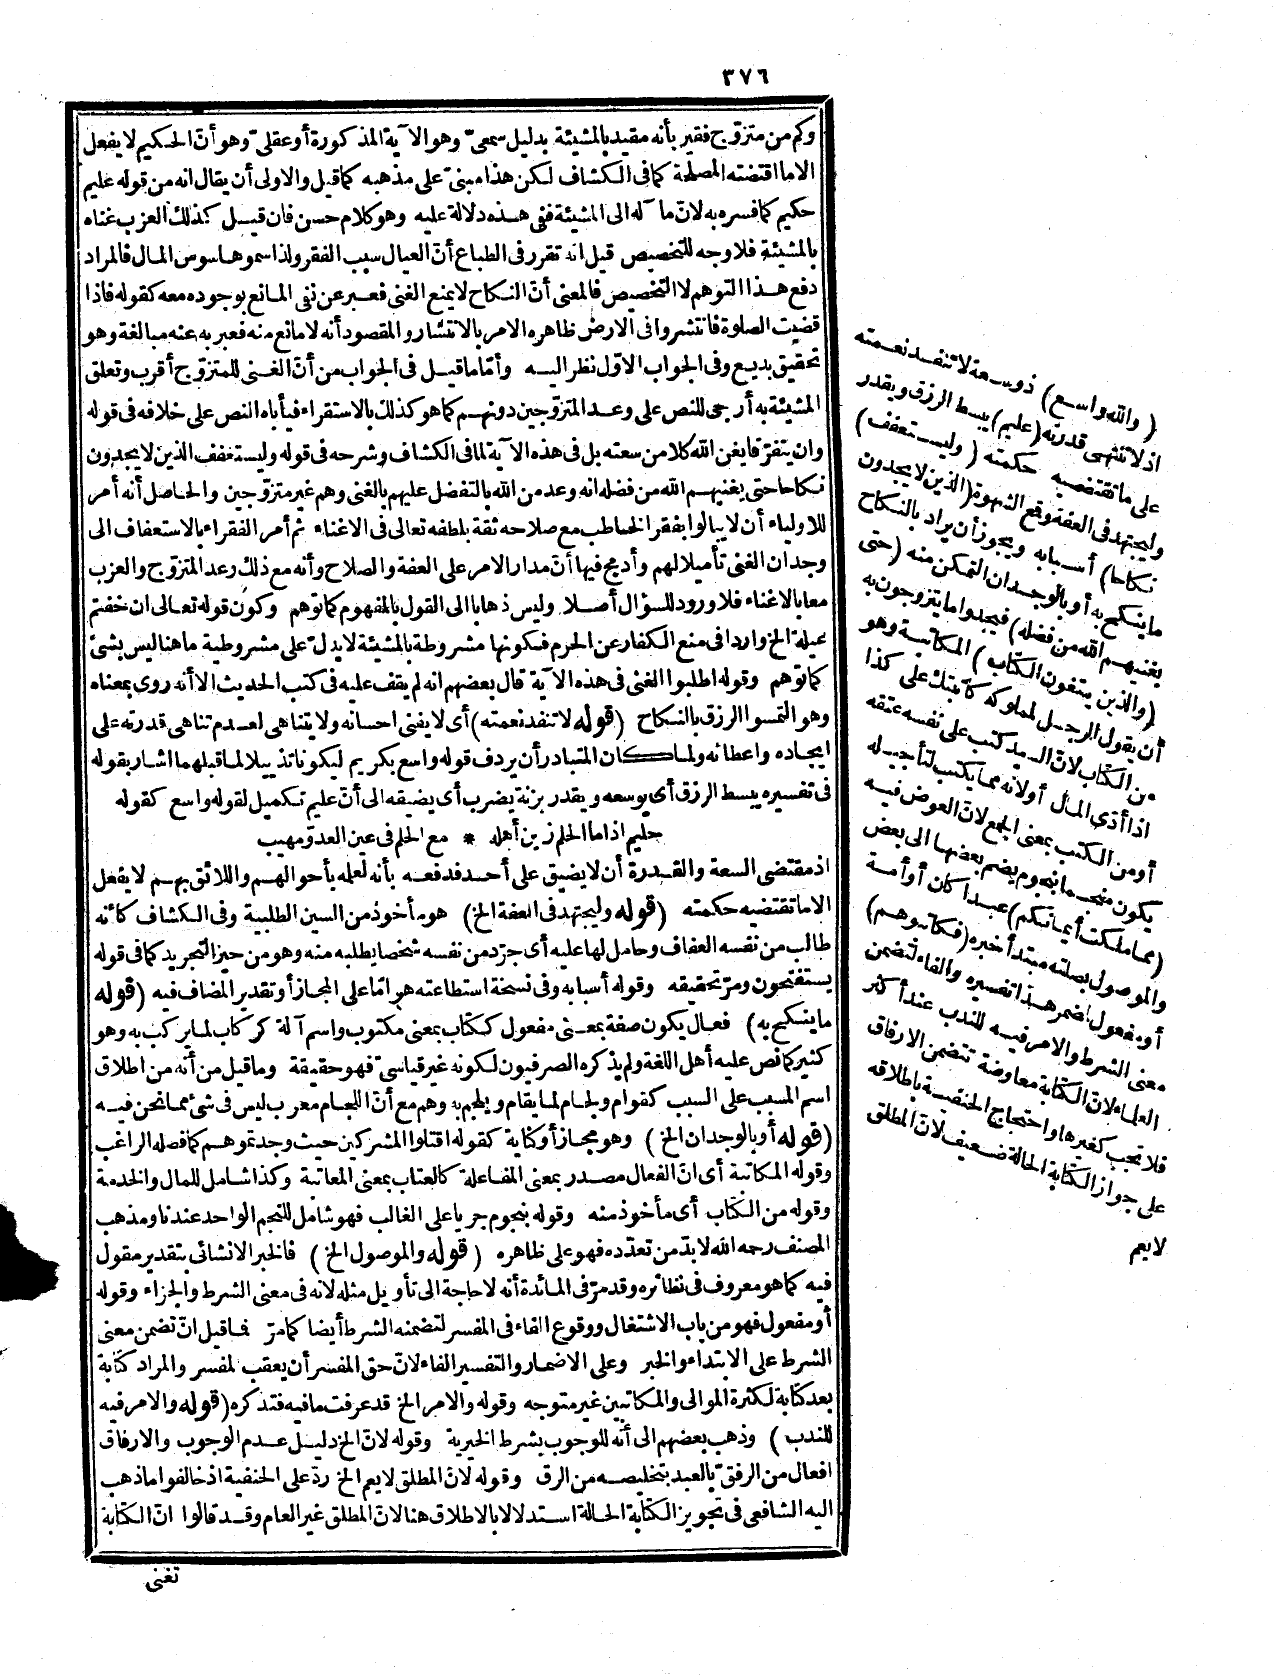 ٣٧٦
وكم من متزوّج فقير بأنه مقيد بالمشيئة بدليل سمعىّ وهو الآية المذكورة أو عقلىّ وهو أنّ الحكيم لا يفعل
الا ما اقتضته المصلحة كما فى الكشاف لكن هذا مبنىّ على مذهبه كما قيل والاولى أن يقال انه من قوله عليم
حكيم كما فسره به لانّ مآله الى المشيئة ففى هذه دلالة عليه وهو كلام حسن فان قيل كذلك العزب غناه
بالمشيئة فلا وجه للتخصيص قيل انه تقرر فى الطباع أنّ العيال سبب الفقر ولذا سموها سوس المال فالمراد
دفع هذا التوهم لا التخصيص فالمعنى أنّ النكاح لا يمنع الغنى فعبر عن نفى المانع بوجوده معه كقوله فاذا
قضيت الصلوة فانتشروا فى الارض ظاهره الامر بالانتشار والمقصود أنه لا مانع منه فعبر به عنه مبالغة وهو
تحقيق بديع وفى الجواب الاوّل نظر اليه وأمّا ما قيل فى الجواب من أنّ الغنى للمتزوّج أقرب وتعلق
المشيئة به أرجى للنص على وعد المتزوّجين دونهم كما هو كذلك بالاستقراء فيأباه النص على خلافه فى قوله
وان يتفرّقا يغن الله كلا من سعته بل فى هذه الآية لما فى الكشاف وشرحه فى قوله وليستعفف الذين لا يجدون
نكاحا حتى يغنيهم الله من فضله انه وعد من الله بالتفضل عليهم بالغنى وهم غير متزوّجين والحاصل أنه أمر
للاولياء أن لا يبالوا بفقر الخاطب مع صلاحه ثقة بلطفه تعالى فى الاغناء ثم أمر الفقراء بالاستعفاف الى
وجدان الغنى تأميلا لهم وأدمج فيها أنّ مدار الامر على العفة والصلاح وأنه مع ذلك وعد المتزوّج والعزب
معا بالاغناء فلا ورود للسؤال أصلا وليس ذهابا الى القول بالمفهوم كما توهم وكون قوله تعالى ان خفتم
عيلة الخ واردا فى منع الكفار عن الحرم فكونها مشروطة بالمشيئة لا يدلّ على مشروطية ما هنا ليس بشئ
كما توهم وقوله اطلبوا الغنى فى هذه الآية قال بعضهم انه لم يقف عليه فى كتب الحديث الا أنه روى بمعناه
وهو التمسوا الرزق بالنكاح (قوله لا تنفد نعمته) أى لا يفنى احسانه ولا يتناهى لعدم تناهى قدرته على
ايجاده واعطائه ولما كان المتبادر أن يردف قوله واسع بكريم ليكون تذييلا لما قبلهما أشار بقوله
فى تفسيره يبسط الرزق أى يوسعه ويقدر بزنة يضرب أى يضيقه الى أنّ عليم تكميل لقوله واسع كقوله
حليم اذا ما الحلم زين أهله * مع الحلم فى عين العدوّ مهيب
اذ مقتضى السعة والقدرة أن لا يضيق على أحد فدفعه بأنه لعلمه بأحوالهم واللائق بهم لا يفعل
الا ما تقتضيه حكمته (قوله وليجتهد فى العفة الخ) هو مأخوذ من السين الطلبية وفى الكشاف كانّه
طالب من نفسه العفاف وحامل لها عليه أى جرّد من نفسه شخصا يطلبه منه وهو من حيز التجريد كما فى قوله
يستفتحون ومرّ تحقيقه وقوله أسبابه وفى نسخة استطاعته هو امّا على المجاز أو تقدير المضاف فيه (قوله
ما ينكح به) فعال يكون صفة بمعنى مفعول ككتاب بمعنى مكتوب واسم آلة كركاب لما يركب به وهو
كثير كما نص عليه أهل اللغة ولم يذكره الصرفيون لكونه غير قياسىّ فهو حقيقة وما قيل من أنه من اطلاق
اسم المسبب على السبب كقوام ولجام لما يقام ويلجم به وهم مع أنّ اللجام معرب ليس فى شئ مما نحن فيه
(قوله أو بالوجدان الخ) وهو مجاز أو كناية كقوله اقتلوا المشركين حيث وجدتموهم كما فصله الراغب
وقوله المكاتبة أى انّ الفعال مصدر بمعنى المفاعلة كالعتاب بمعنى المعاتبة وكذا شامل للمال والخدمة
وقوله من الكتاب أى مأخوذ منه وقوله بنجوم جريا على الغالب فهو شامل للنجم الواحد عندنا ومذهب
المصنف رحمه الله لا بدّ من تعدّده فهو على ظاهره (قوله والموصول الخ) فالخبر الانشائى بتقدير مقول
فيه كما هو معروف فى نظائره وقد مرّ فى المائدة أنه لا حاجة الى تأويل مثله لانه فى معنى الشرط والجزاء وقوله
أو مفعول فهو من باب الاشتغال ووقوع الفاء فى المفسر لتضمنه الشرط أيضا كما مرّ فما قيل انّ تضمن معنى
الشرط على الابتداء والخبر وعلى الاضمار والتفسير الفاء لانّ حق المفسر أن يعقب لمفسر والمراد كتابة
بعد كتابة لكثرة الموالى والمكاتبين غير متوجه وقوله والامر الخ قد عرفت ما فيه فتذكره (قوله والامر فيه
للندب) وذهب بعضهم الى أنه للوجوب بشرط الخيرية وقوله لانّ الخ دليل عدم الوجوب والارفاق
افعال من الرفق بالعبد بتخليصه من الرق وقوله لانّ المطلق لا يعم الخ ردّ على الحنفية اذ خالفوا ما ذهب
اليه الشافعى فى تجويز الكتابة الحالة استدلالا بالاطلاق هنا لانّ المطلق غير العام وقد قالوا انّ الكتابة
تغنى
(والله واسع) ذو سعة لا تنفد نعمته
اذ لا تنتهى قدرته (عليم) يبسط الرزق ويقدر
على ما تقتضيه حكمته (وليستعفف)
وليجتهد فى العفة وقمع الشهوة (الذين لا يجدون
نكاحا) أسبابه ويجوز أن يراد بالنكاح
ما ينكح به أو بالوجدان التمكن منه (حتى
يغنيهم الله من فضله) فيجدوا ما يتزوجون به
(والذين يبتغون الكتاب) المكاتبة وهو
أن يقول الرجل لمملوكه كاتبتك على كذا
من الكتاب لانّ السيد كتب على نفسه عتقه
اذا أدّى المال أو لانه مما يكتب لتأجيله
أو من الكتب بمعنى الجمع لان العوض فيه
يكون منجما بنجوم يضم بعضها الى بعض
(مما ملكت أيمانكم) عبدا كان أو أمة
والموصول بصلته مبتدأ خبره (فكاتبوهم)
أو مفعول لمضمر هذا تفسيره والفاء لتضمن
معنى الشرط والامر فيه للندب عند أكثر
العلماء لانّ الكتابة معاوضة تتضمن الارفاق
فلا تجب كغيرها واحتجاج الحنفية باطلاقه
على جواز الكتابة الحالة ضعيف لانّ المطلق
لا يعم